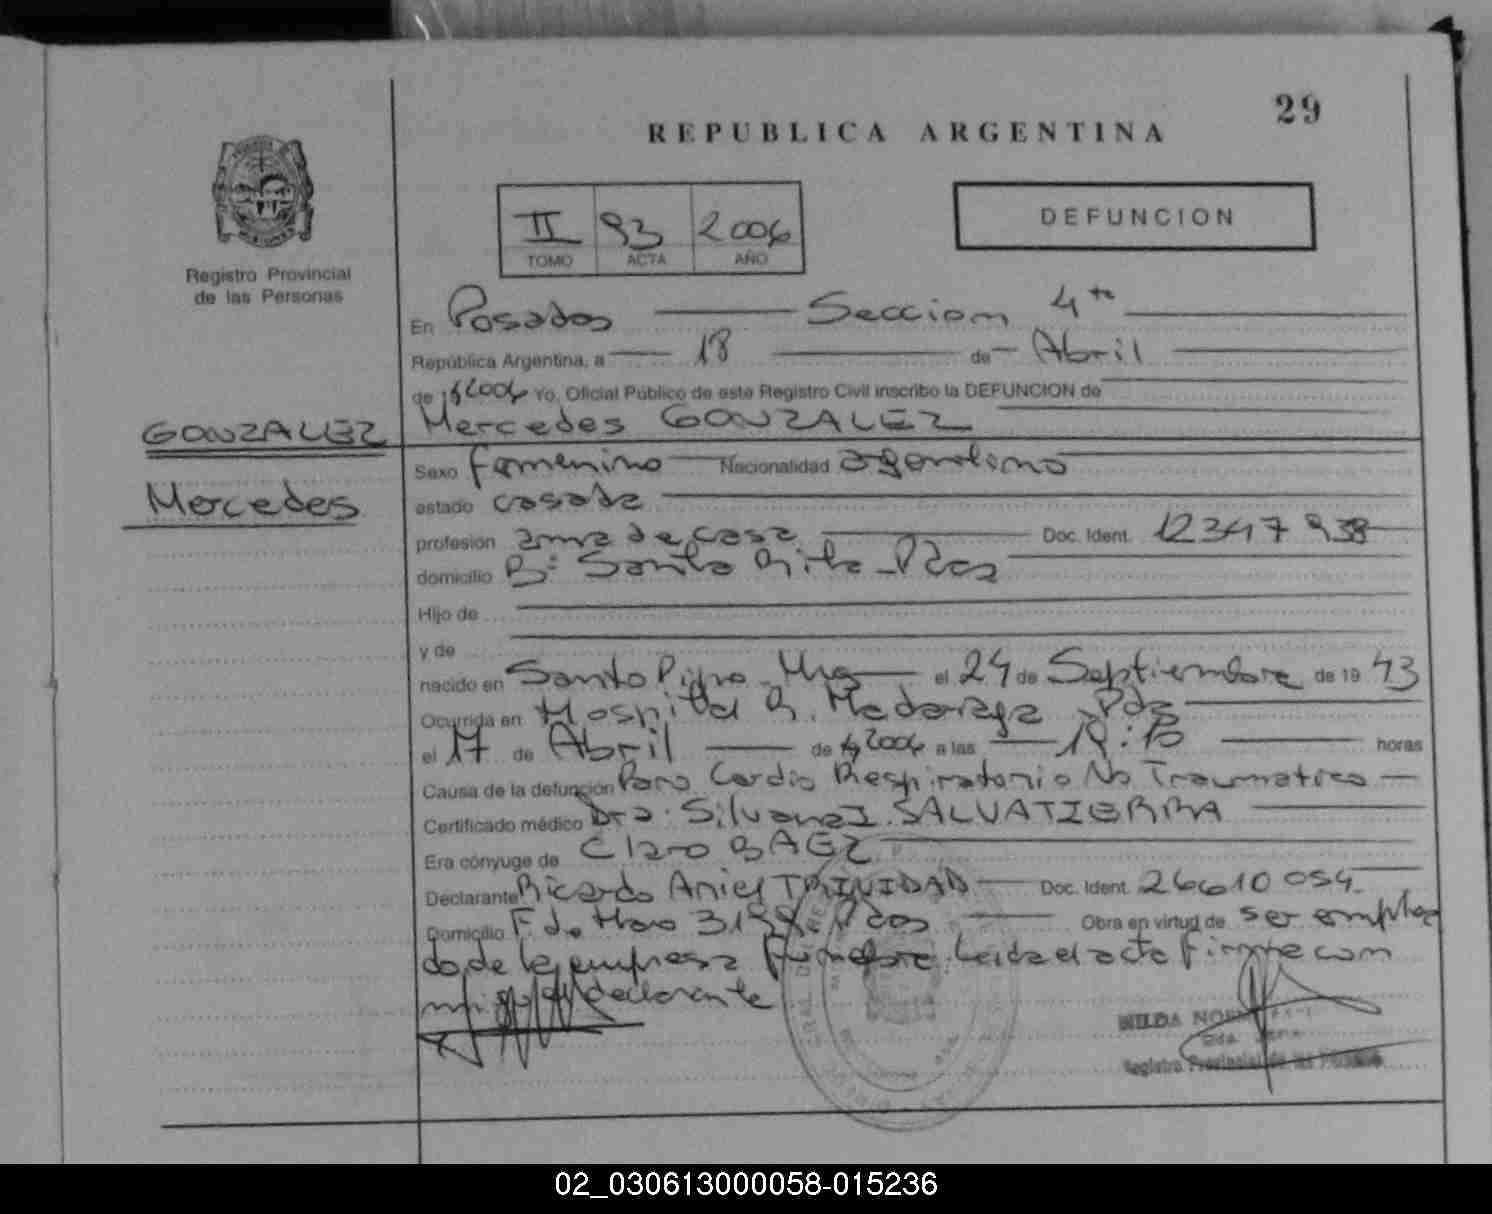 29
REPUBLICA ARGENTINA
II 93 2006
TOMO ACTA AÑO
DEFUNCION
Registro Provincial
de las Personas
En Posadas Seccion 4ta
República Argentina, a 18 de Abril
de 2006 Yo, Oficial Público de este Registro Civil inscribo la DEFUNCION de
GONZALEZ
Mercedes
Mercedes GONZALEZ
Sexo femenino Nacionalidad argentina
estado casada
profesión ama de casa Doc. Ident. 12347938
domicilio B: Santa Rita Pdas
Hijo de
y de
nacido en Santo Pipo Mnes el 24 de Septiembre de 19 43
Ocurrida en Hospital R. Madariaga Pdas
el 17 de Abril de 2006 a las horas
Causa de la defunción Paro Cardio Respiratorio No Traumatico
Certificado médico Dra. Silvana I. SALVATIERRA
Era cónyuge de Claro BAEZ
Declarante Ricardo Ariel TRINIDAD Doc. Ident. 26610054
Domicilio F. de Haro Pdas Obra en virtud de ser emplea
do de la empresa funebre. Leida el acta firma con
migo el declarante
Registro Provincial de las Personas
02_030613000058-015236